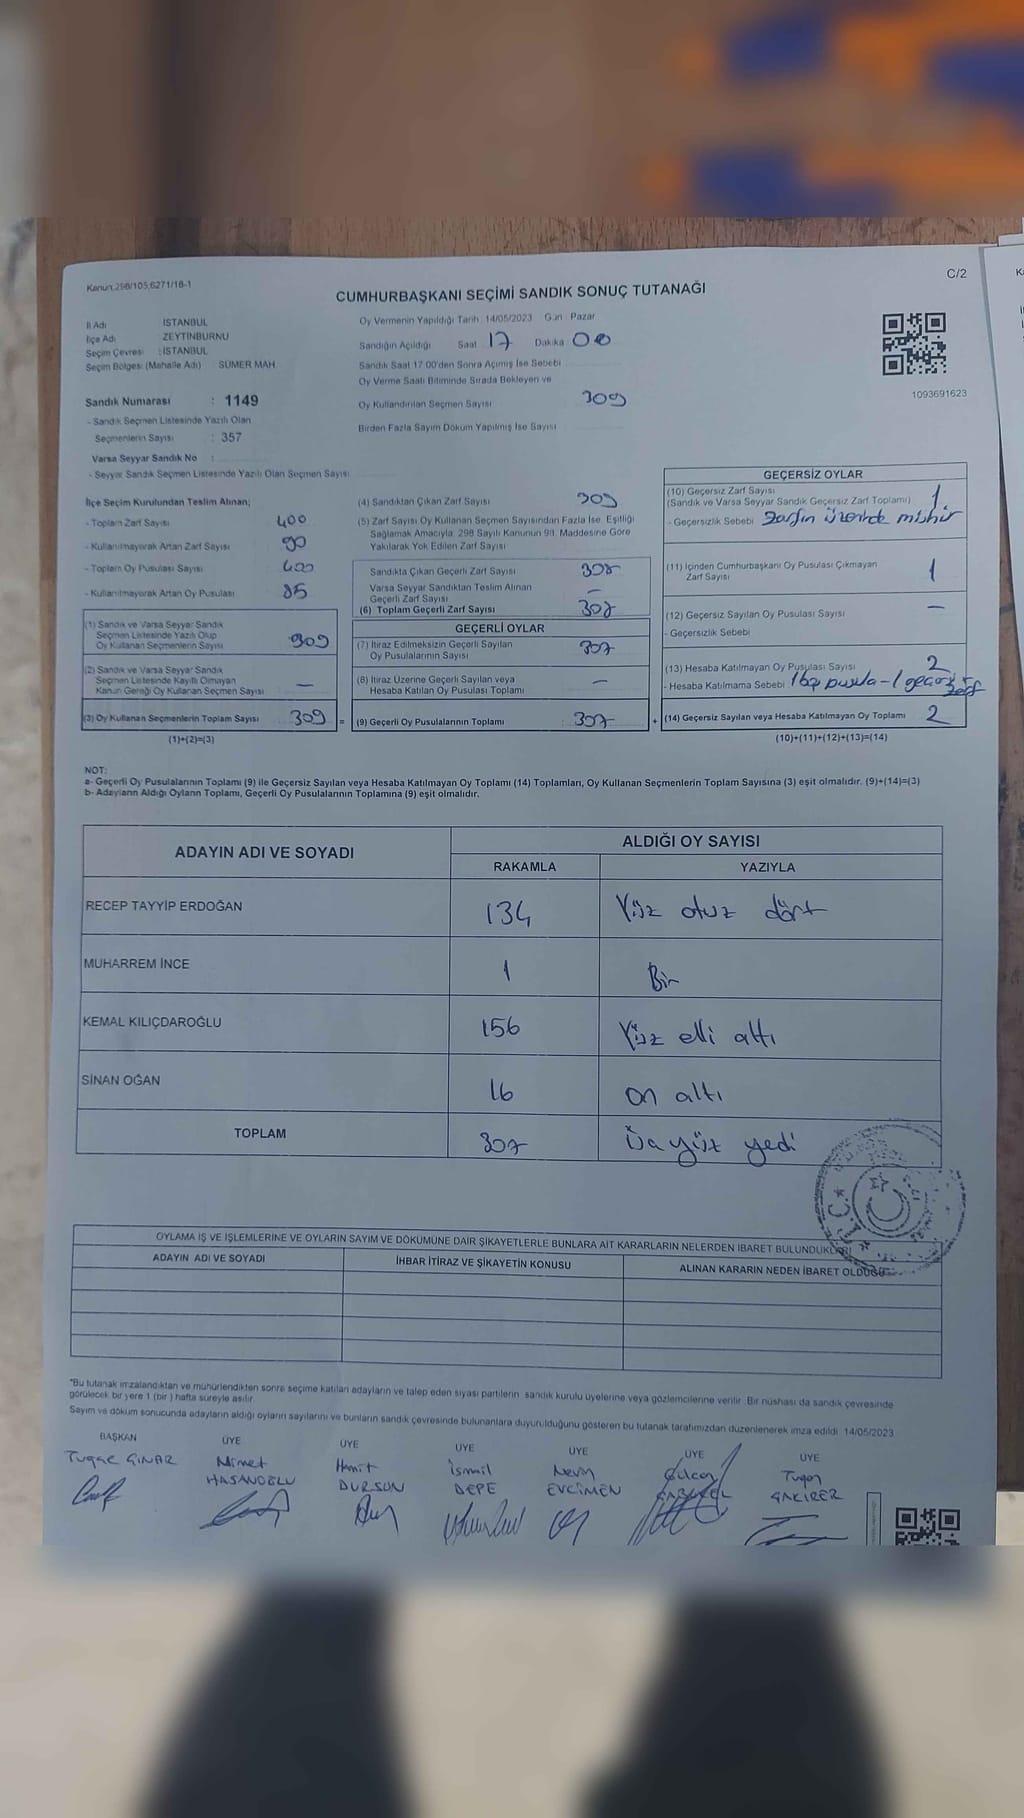 Kanun:298/105,6271/18-1
C/2
CUMHURBAŞKANI SEÇİMİ SANDIK SONUÇ TUTANAĞI
İl Adı : İSTANBUL
İlçe Adı ZEYTİNBURNU
Seçim Çevresi : İSTANBUL
Seçim Bölgesi (Mahalle Adı) SÜMER MAH.
Sandık Numarası : 1149
- Sandık Seçmen Listesinde Yazılı Olan
Seçmenlerin Sayısı : 357
Varsa Seyyar Sandık No :
- Seyyar Sandık Seçmen Listesinde Yazılı Olan Seçmen Sayısı
Oy Vermenin Yapıldığı Tarih 14/05/2023 Gün Pazar
Sandığın Açıldığı Saat 17 Dakika 00
Sandık Saat 17:00'den Sonra Açılmış İse Sebebi
Oy Verme Saati Bitiminde Sırada Bekleyen ve
Oy Kullandırılan Seçmen Sayısı 309
Birden Fazla Sayım Döküm Yapılmış İse Sayısı
1093691623
İlçe Seçim Kurulundan Teslim Alınan;
- Toplam Zarf Sayısı 400
- Kullanılmayarak Artan Zarf Sayısı 90
- Toplam Oy Pusulası Sayısı 400
- Kullanılmayarak Artan Oy Pusulası 85
(1) Sandık ve Varsa Seyyar Sandık
Seçmen Listesinde Yazılı Olup
Oy Kullanan Seçmenlerin Sayısı 309
(2) Sandık ve Varsa Seyyar Sandık
Seçmen Listesinde Kayıtlı Olmayan
Kanun Gereği Oy Kullanan Seçmen Sayısı —
(3) Oy Kullanan Seçmenlerin Toplam Sayısı 309 =
(1)+(2)=(3)
(4) Sandıktan Çıkan Zarf Sayısı 309
(5) Zarf Sayısı Oy Kullanan Seçmen Sayısından Fazla İse, Eşitliği
Sağlamak Amacıyla, 298 Sayılı Kanunun 98. Maddesine Göre
Yakılarak Yok Edilen Zarf Sayısı
Sandıkta Çıkan Geçerli Zarf Sayısı 308
Varsa Seyyar Sandıktan Teslim Alınan
Geçerli Zarf Sayısı —
(6) Toplam Geçerli Zarf Sayısı 308
GEÇERLİ OYLAR
(7) İtiraz Edilmeksizin Geçerli Sayılan
Oy Pusulalarının Sayısı 307
(8) İtiraz Üzerine Geçerli Sayılan veya
Hesaba Katılan Oy Pusulası Toplamı —
(9) Geçerli Oy Pusulalarının Toplamı : 307 +
GEÇERSİZ OYLAR
(10) Geçersiz Zarf Sayısı
(Sandık ve Varsa Seyyar Sandık Geçersiz Zarf Toplamı) 1
- Geçersizlik Sebebi Zarfın üzerinde mühür
(11) İçinden Cumhurbaşkanı Oy Pusulası Çıkmayan
Zarf Sayısı 1
(12) Geçersiz Sayılan Oy Pusulası Sayısı —
- Geçersizlik Sebebi
(13) Hesaba Katılmayan Oy Pusulası Sayısı 2
- Hesaba Katılmama Sebebi 1 boş pusula - 1 geçersiz zarf
(14) Geçersiz Sayılan veya Hesaba Katılmayan Oy Toplamı 2
(10)+(11)+(12)+(13)=(14)
NOT:
a- Geçerli Oy Pusulalarının Toplamı (9) ile Geçersiz Sayılan veya Hesaba Katılmayan Oy Toplamı (14) Toplamları, Oy Kullanan Seçmenlerin Toplam Sayısına (3) eşit olmalıdır. (9)+(14)=(3)
b- Adayların Aldığı Oyların Toplamı, Geçerli Oy Pusulalarının Toplamına (9) eşit olmalıdır.
ADAYIN ADI VE SOYADI ALDIĞI OY SAYISI
RAKAMLA YAZIYLA
RECEP TAYYİP ERDOĞAN 134 Yüz otuz dört
MUHARREM İNCE 1 Bir
KEMAL KILIÇDAROĞLU 156 Yüz elli altı
SİNAN OĞAN 16 on altı
TOPLAM 307 Üç yüz yedi
OYLAMA İŞ VE İŞLEMLERİNE VE OYLARIN SAYIM VE DÖKÜMÜNE DAİR ŞİKAYETLERLE BUNLARA AİT KARARLARIN NELERDEN İBARET BULUNDUKLARI
ADAYIN ADI VE SOYADI İHBAR İTİRAZ VE ŞİKAYETİN KONUSU ALINAN KARARIN NEDEN İBARET OLDUĞU
*Bu tutanak imzalandıktan ve mühürlendikten sonra seçime katılan adayların ve talep eden siyasi partilerin sandık kurulu üyelerine veya gözlemcilerine verilir. Bir nüshası da sandık çevresinde
görülecek bir yere 1 (bir) hafta süreyle asılır.
Sayım ve döküm sonucunda adayların aldığı oyların sayılarını ve bunların sandık çevresinde bulunanlara duyurulduğunu gösteren bu tutanak tarafımızdan düzenlenerek imza edildi. 14/05/2023
BAŞKAN ÜYE ÜYE ÜYE ÜYE ÜYE ÜYE
Tugçe ÇINAR Nimet HASANOĞLU Hamit DURSUN İsmail DEPE Nevin EVCİMEN Gülcan Tugan ÇAKIRER